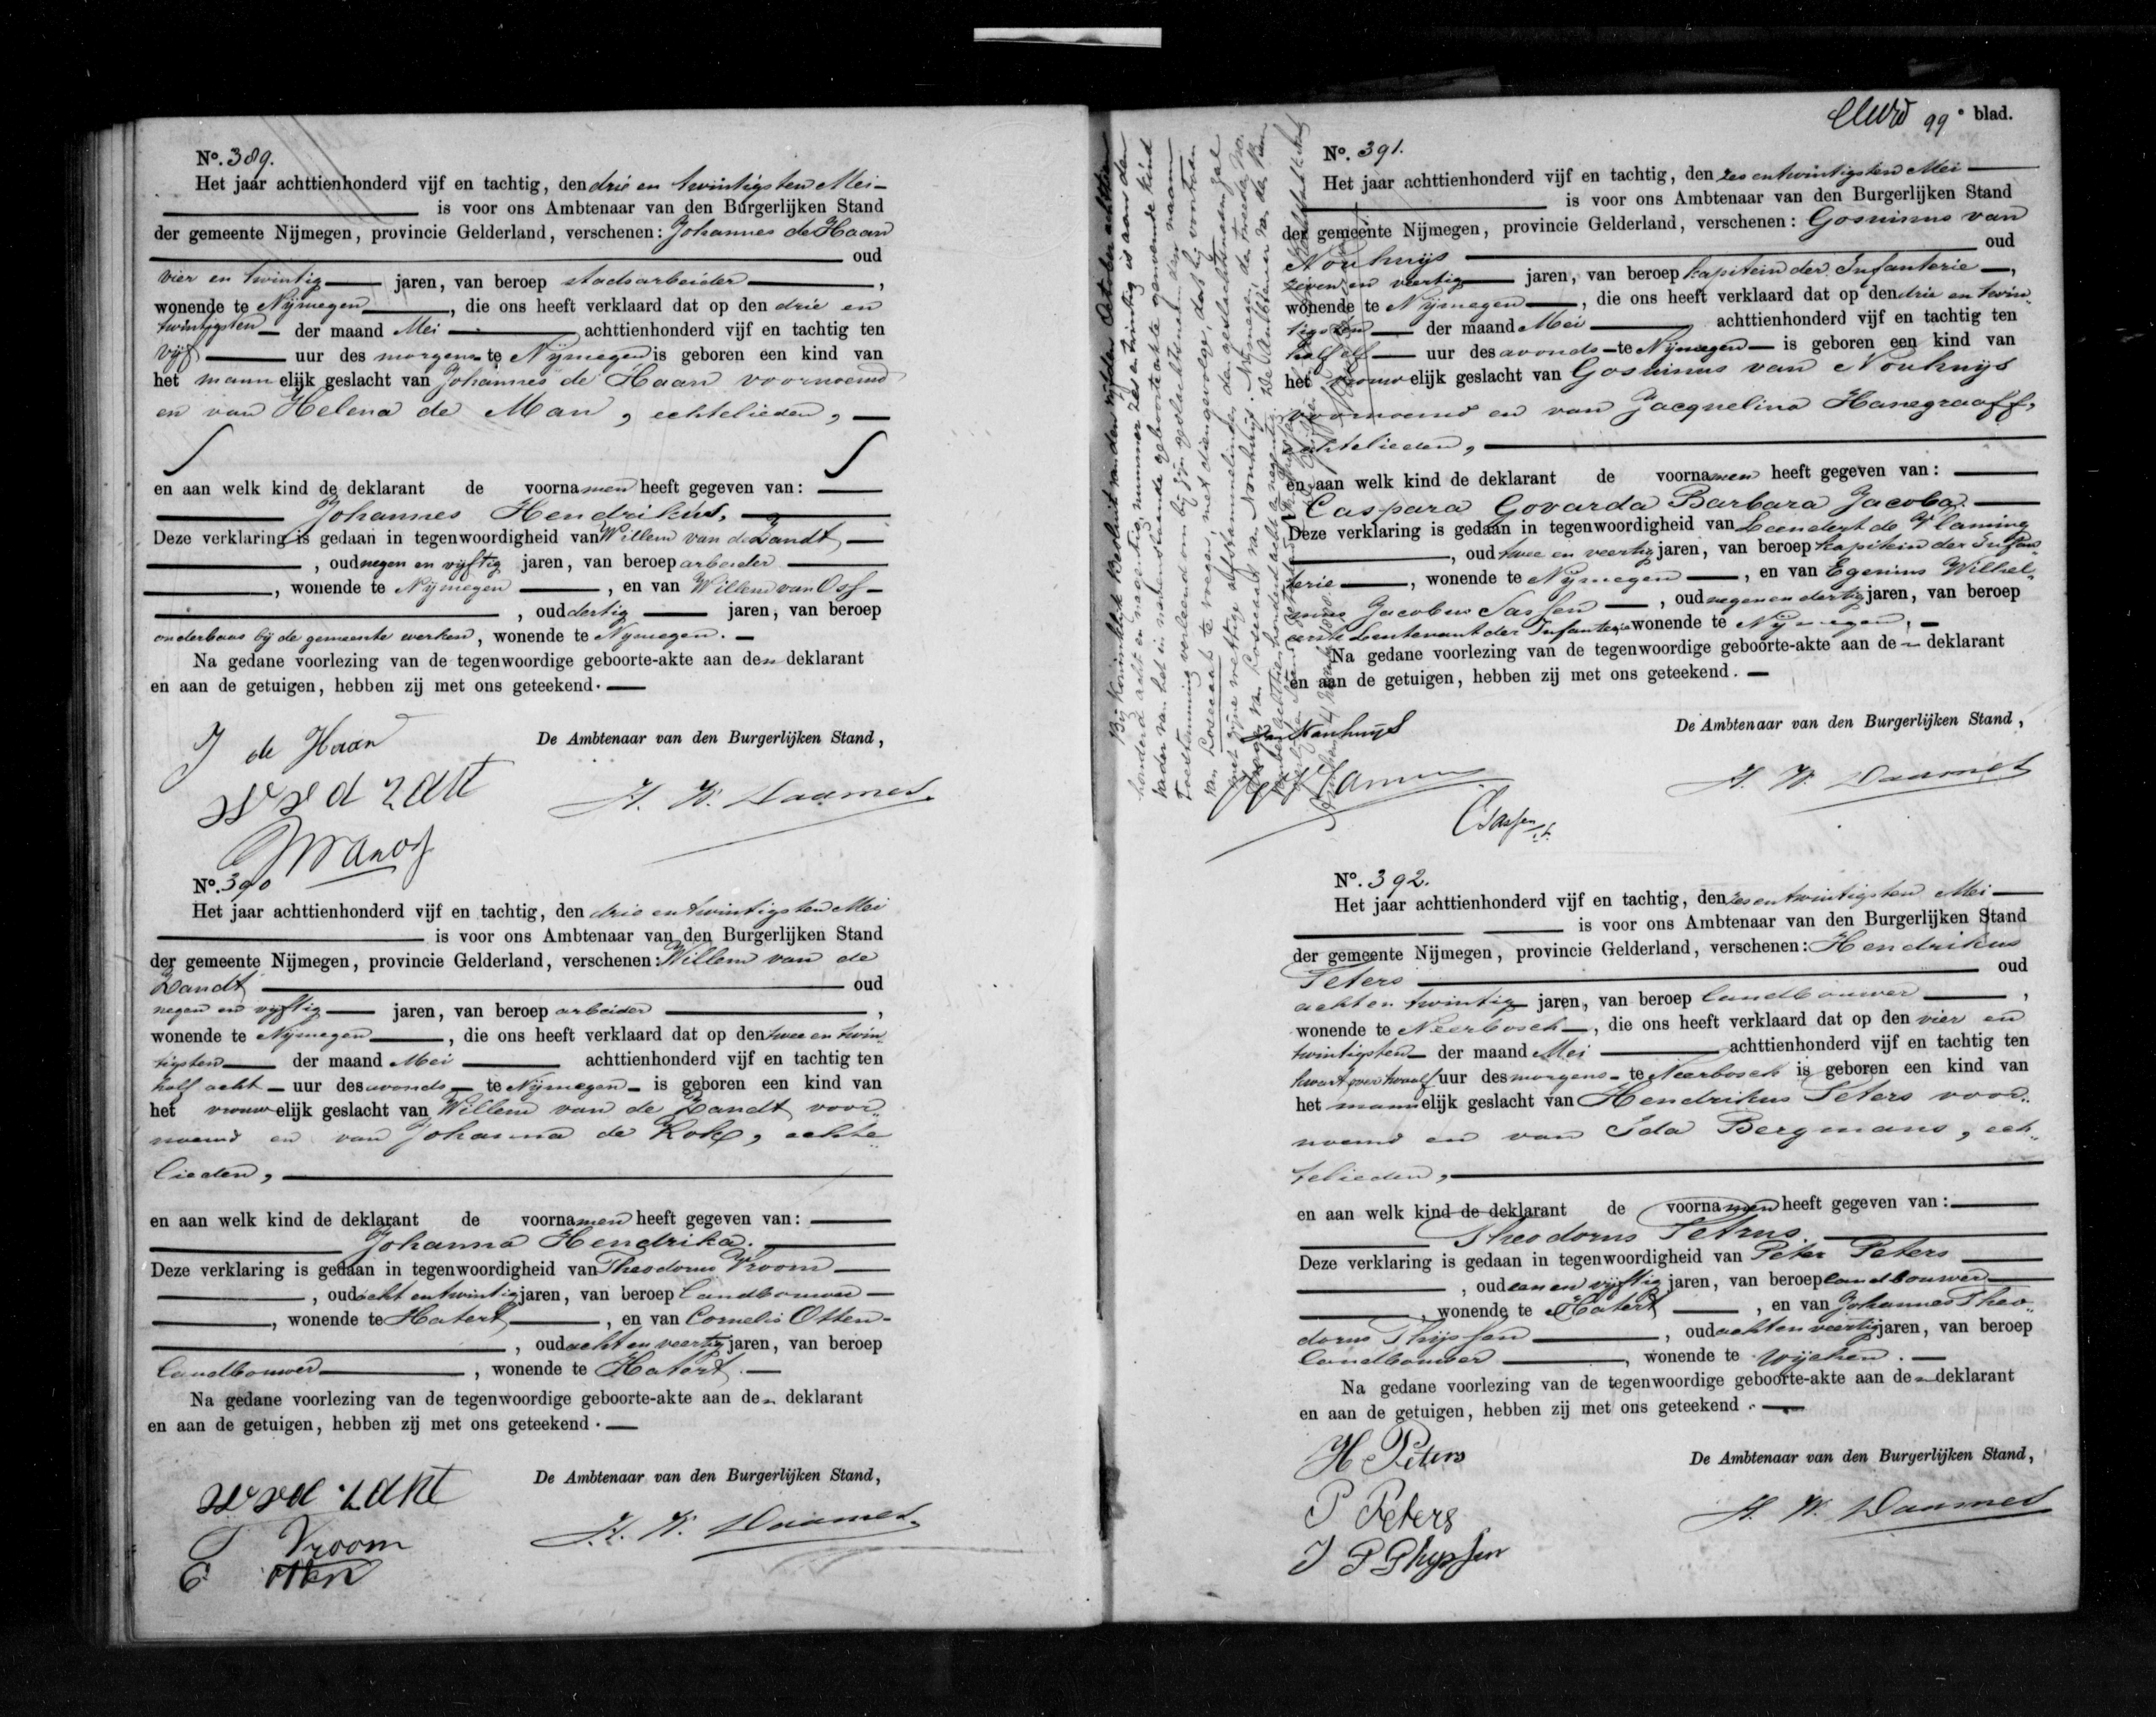 No. 389.
Het jaar achttienhonderd vijf en tachtig, den drie en twintigsten Mei
is voor ons Ambtenaar van den Burgerlijken Stand
der gemeente Nijmegen, provincie Gelderland, verschenen: Johannes de Haan
oud
vier en twintig jaren, van beroep stadsarbeider,
wonende te Nijmegen, die ons heeft verklaard dat op den drie en
twintigsten der maand Mei achttienhonderd vijf en tachtig ten
vijf uur des morgens te Nijmegen is geboren een kind van
het mannelijk geslacht van Johannes de Haan voornoemd
en van Helena de Man, echtelieden,
en aan welk kind de deklarant de voornamen heeft gegeven van:
Johannes Hendrikus.
Deze verklaring is gedaan in tegenwoordigheid van Willem van de Zandt
, oud negen en vijftig jaren, van beroep arbeider
, wonende te Nijmegen, en van Willem van Oss
, oud dertig jaren, van beroep
onderbaas bij de gemeente werken, wonende te Nijmegen.
Na gedane voorlezing van de tegenwoordige geboorte-akte aan den deklarant
en aan de getuigen, hebben zij met ons geteekend.
J de Haan
De Ambtenaar van den Burgerlijken Stand,
W v d zant
H. W. Daamen
W van os
No. 390
Het jaar achttienhonderd vijf en tachtig, den drie en twintigsten Mei
is voor ons Ambtenaar van den Burgerlijken Stand
der gemeente Nijmegen, provincie Gelderland, verschenen: Willem van de
Zandt oud
negen en vijftig jaren, van beroep arbeider,
wonende te Nijmegen, die ons heeft verklaard dat op den twee en twin-
tigsten der maand Mei achttienhonderd vijf en tachtig ten
half acht uur des avonds te Nijmegen is geboren een kind van
het vrouwelijk geslacht van Willem van de Zandt voor-
noemd en van Johanna de Kok, echte-
lieden,
en aan welk kind de deklarant de voornamen heeft gegeven van:
Johanna Hendrika.
Deze verklaring is gedaan in tegenwoordigheid van Theodorus Vroom
, oud acht en twintig jaren, van beroep landbouwer
, wonende te Hatert, en van Cornelis Otten
, oud acht en veertig jaren, van beroep
landbouwer, wonende te Hatert.
Na gedane voorlezing van de tegenwoordige geboorte-akte aan den deklarant
en aan de getuigen, hebben zij met ons geteekend.
W v d zant
De Ambtenaar van den Burgerlijken Stand,
T Vroom
H. W. Daamen
C otten
99e blad.
Bij Koninklijk Besluit van den vijfden October achttien
honderd acht en negentig nummer zes en twintig is aan den
vader van het in nevenstaande geboorteakte genoemde kind
toestemming verleend om bij zijn geslachtsnaam den naam
van Rosevelt te voegen, met dien gevolge, dat hij voortaan
met zijne wettige afstammelingen den geslachtsnaam zal
No. 391.
Het jaar achttienhonderd vijf en tachtig, den zes en twintigsten Mei
is voor ons Ambtenaar van den Burgerlijken Stand
der gemeente Nijmegen, provincie Gelderland, verschenen: Gosuinus van
Nouhuijs oud
zeven en veertig jaren, van beroep kapitein der Infanterie,
wonende te Nijmegen, die ons heeft verklaard dat op den drie en twin-
tigsten der maand Mei achttienhonderd vijf en tachtig ten
half elf uur des avonds te Nijmegen is geboren een kind van
het vrouwelijk geslacht van Gosuinus van Nouhuijs
voornoemd en van Jacquelina Hanegraaff,
echtelieden,
en aan welk kind de deklarant de voornamen heeft gegeven van:
Caspara Govarda Barbara Jacoba.
Deze verklaring is gedaan in tegenwoordigheid van Leendert de Vlaming
, oud twee en veertig jaren, van beroep kapitein der Infan-
terie, wonende te Nijmegen, en van Egenius Wilhel-
mus Jacobus Sassen, oud negen en dertig jaren, van beroep
eerste Luitenant der Infanterie wonende te Nijmegen.
Na gedane voorlezing van de tegenwoordige geboorte-akte aan de deklarant
en aan de getuigen, hebben zij met ons geteekend.
Van Nouhuijs
De Ambtenaar van den Burgerlijken Stand,
H. W. Daamen
No. 392.
Het jaar achttienhonderd vijf en tachtig, den zes en twintigsten Mei
is voor ons Ambtenaar van den Burgerlijken Stand
der gemeente Nijmegen, provincie Gelderland, verschenen: Hendrikus
Peters oud
acht en twintig jaren, van beroep landbouwer,
wonende te Neerbosch, die ons heeft verklaard dat op den vier en
twintigsten der maand Mei achttienhonderd vijf en tachtig ten
kwart over twaalf uur des morgens te Neerbosch is geboren een kind van
het mannelijk geslacht van Hendrikus Peters voor-
noemd en van Ida Bergmans, ech-
telieden,
en aan welk kind de deklarant de voornamen heeft gegeven van:
Theodorus Petrus.
Deze verklaring is gedaan in tegenwoordigheid van Peter Peters
, oud een en vijftig jaren, van beroep landbouwer
, wonende te Hatert, en van Johannes Theo-
dorus Thijssen, oud acht en veertig jaren, van beroep
landbouwer, wonende te Wijchen.
Na gedane voorlezing van de tegenwoordige geboorte-akte aan de deklarant
en aan de getuigen, hebben zij met ons geteekend.
H Peters
De Ambtenaar van den Burgerlijken Stand,
P Peters
H. W. Daamen